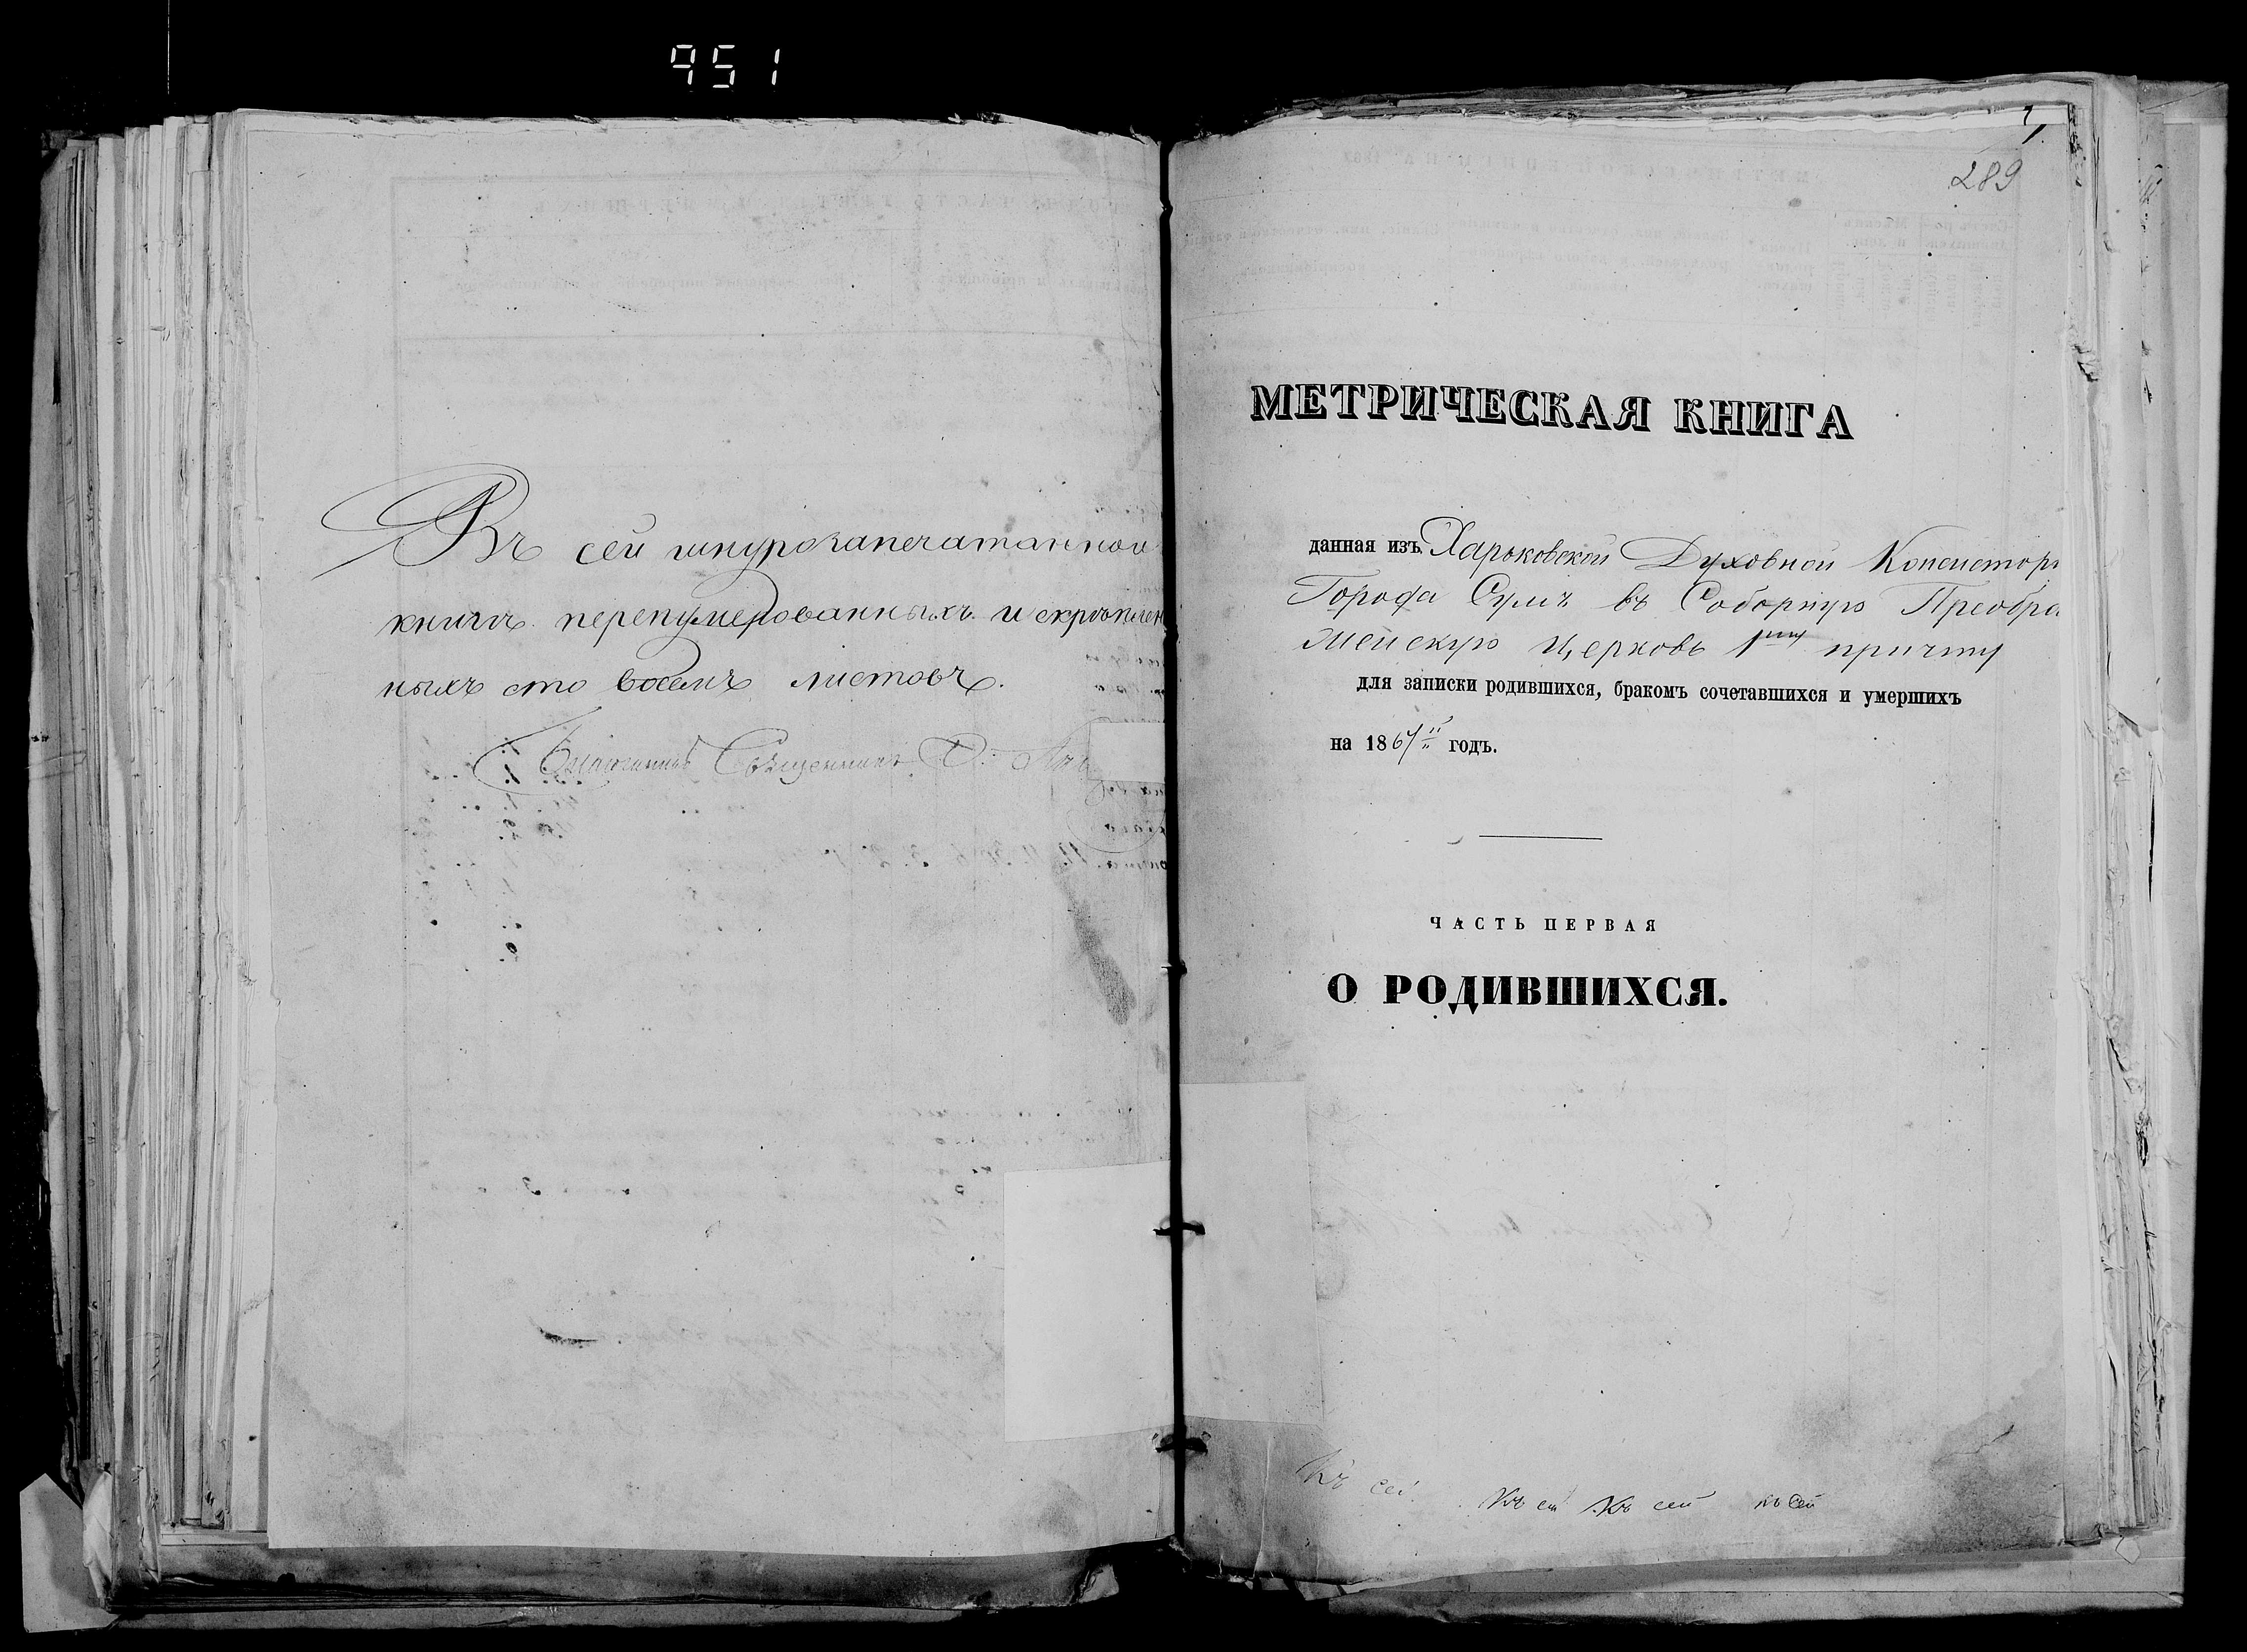 951
Въ сей шнурозапечатанной
книгѣ перенумерованныхъ и скрѣплен
ныхъ сто восемъ листовъ.
Благочинный Священникъ
289
МЕТРИЧЕСКАЯ КНИГА
данная изъ Харьковской Духовной Консистор
Города Сумъ въ Соборную Преобра
женскую Церковь 1му причту
для записки родившихся, бракомъ сочетавшихся и умершихъ
на 1867 годъ.
ЧАСТЬ ПЕРВАЯ
О РОДИВШИХСЯ.
Къ сей Къ сей Къ сей